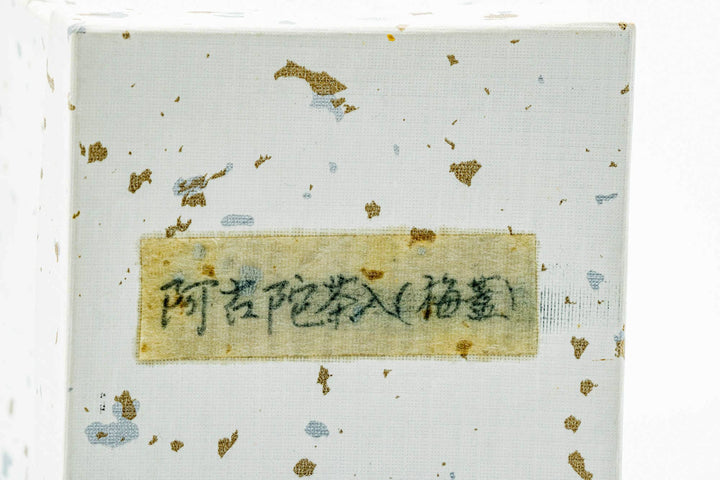 阿古陀茶入(梅蓋)